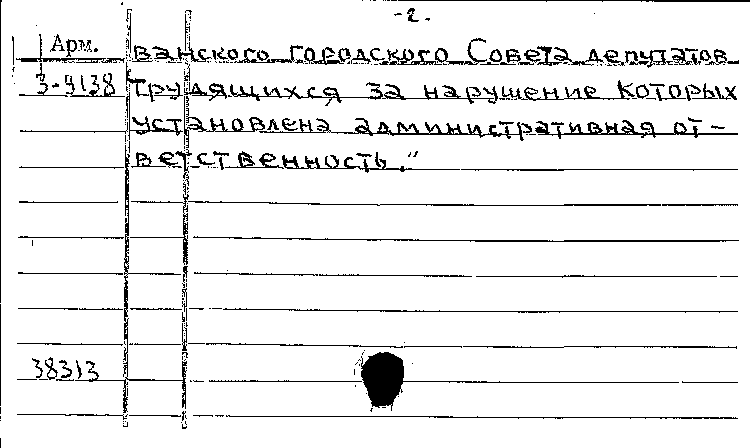 -2.
Арм.
ванского городского Совета депутатов
3-9138 трудящихся за нарушение которых
установлена административная от-
ветственность."
38313